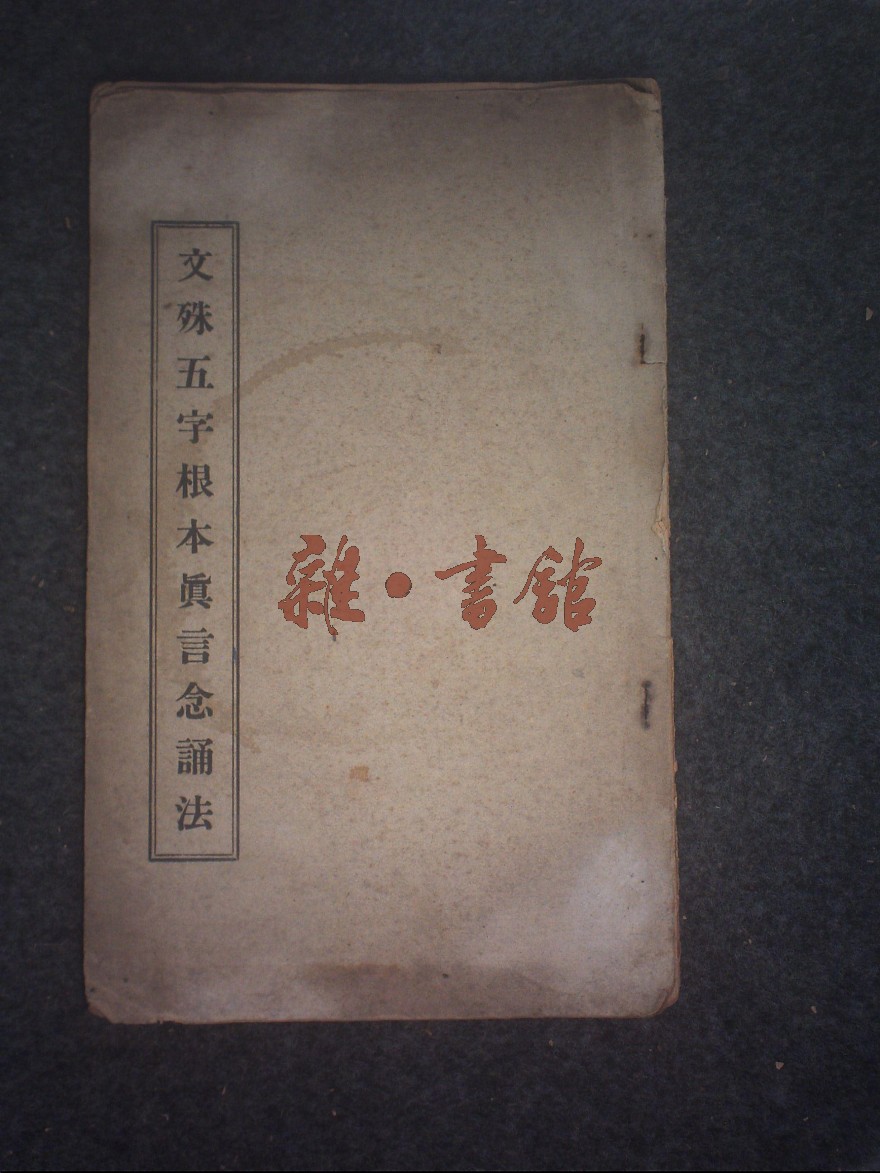 文殊五字根本眞言念誦法
雜·書館